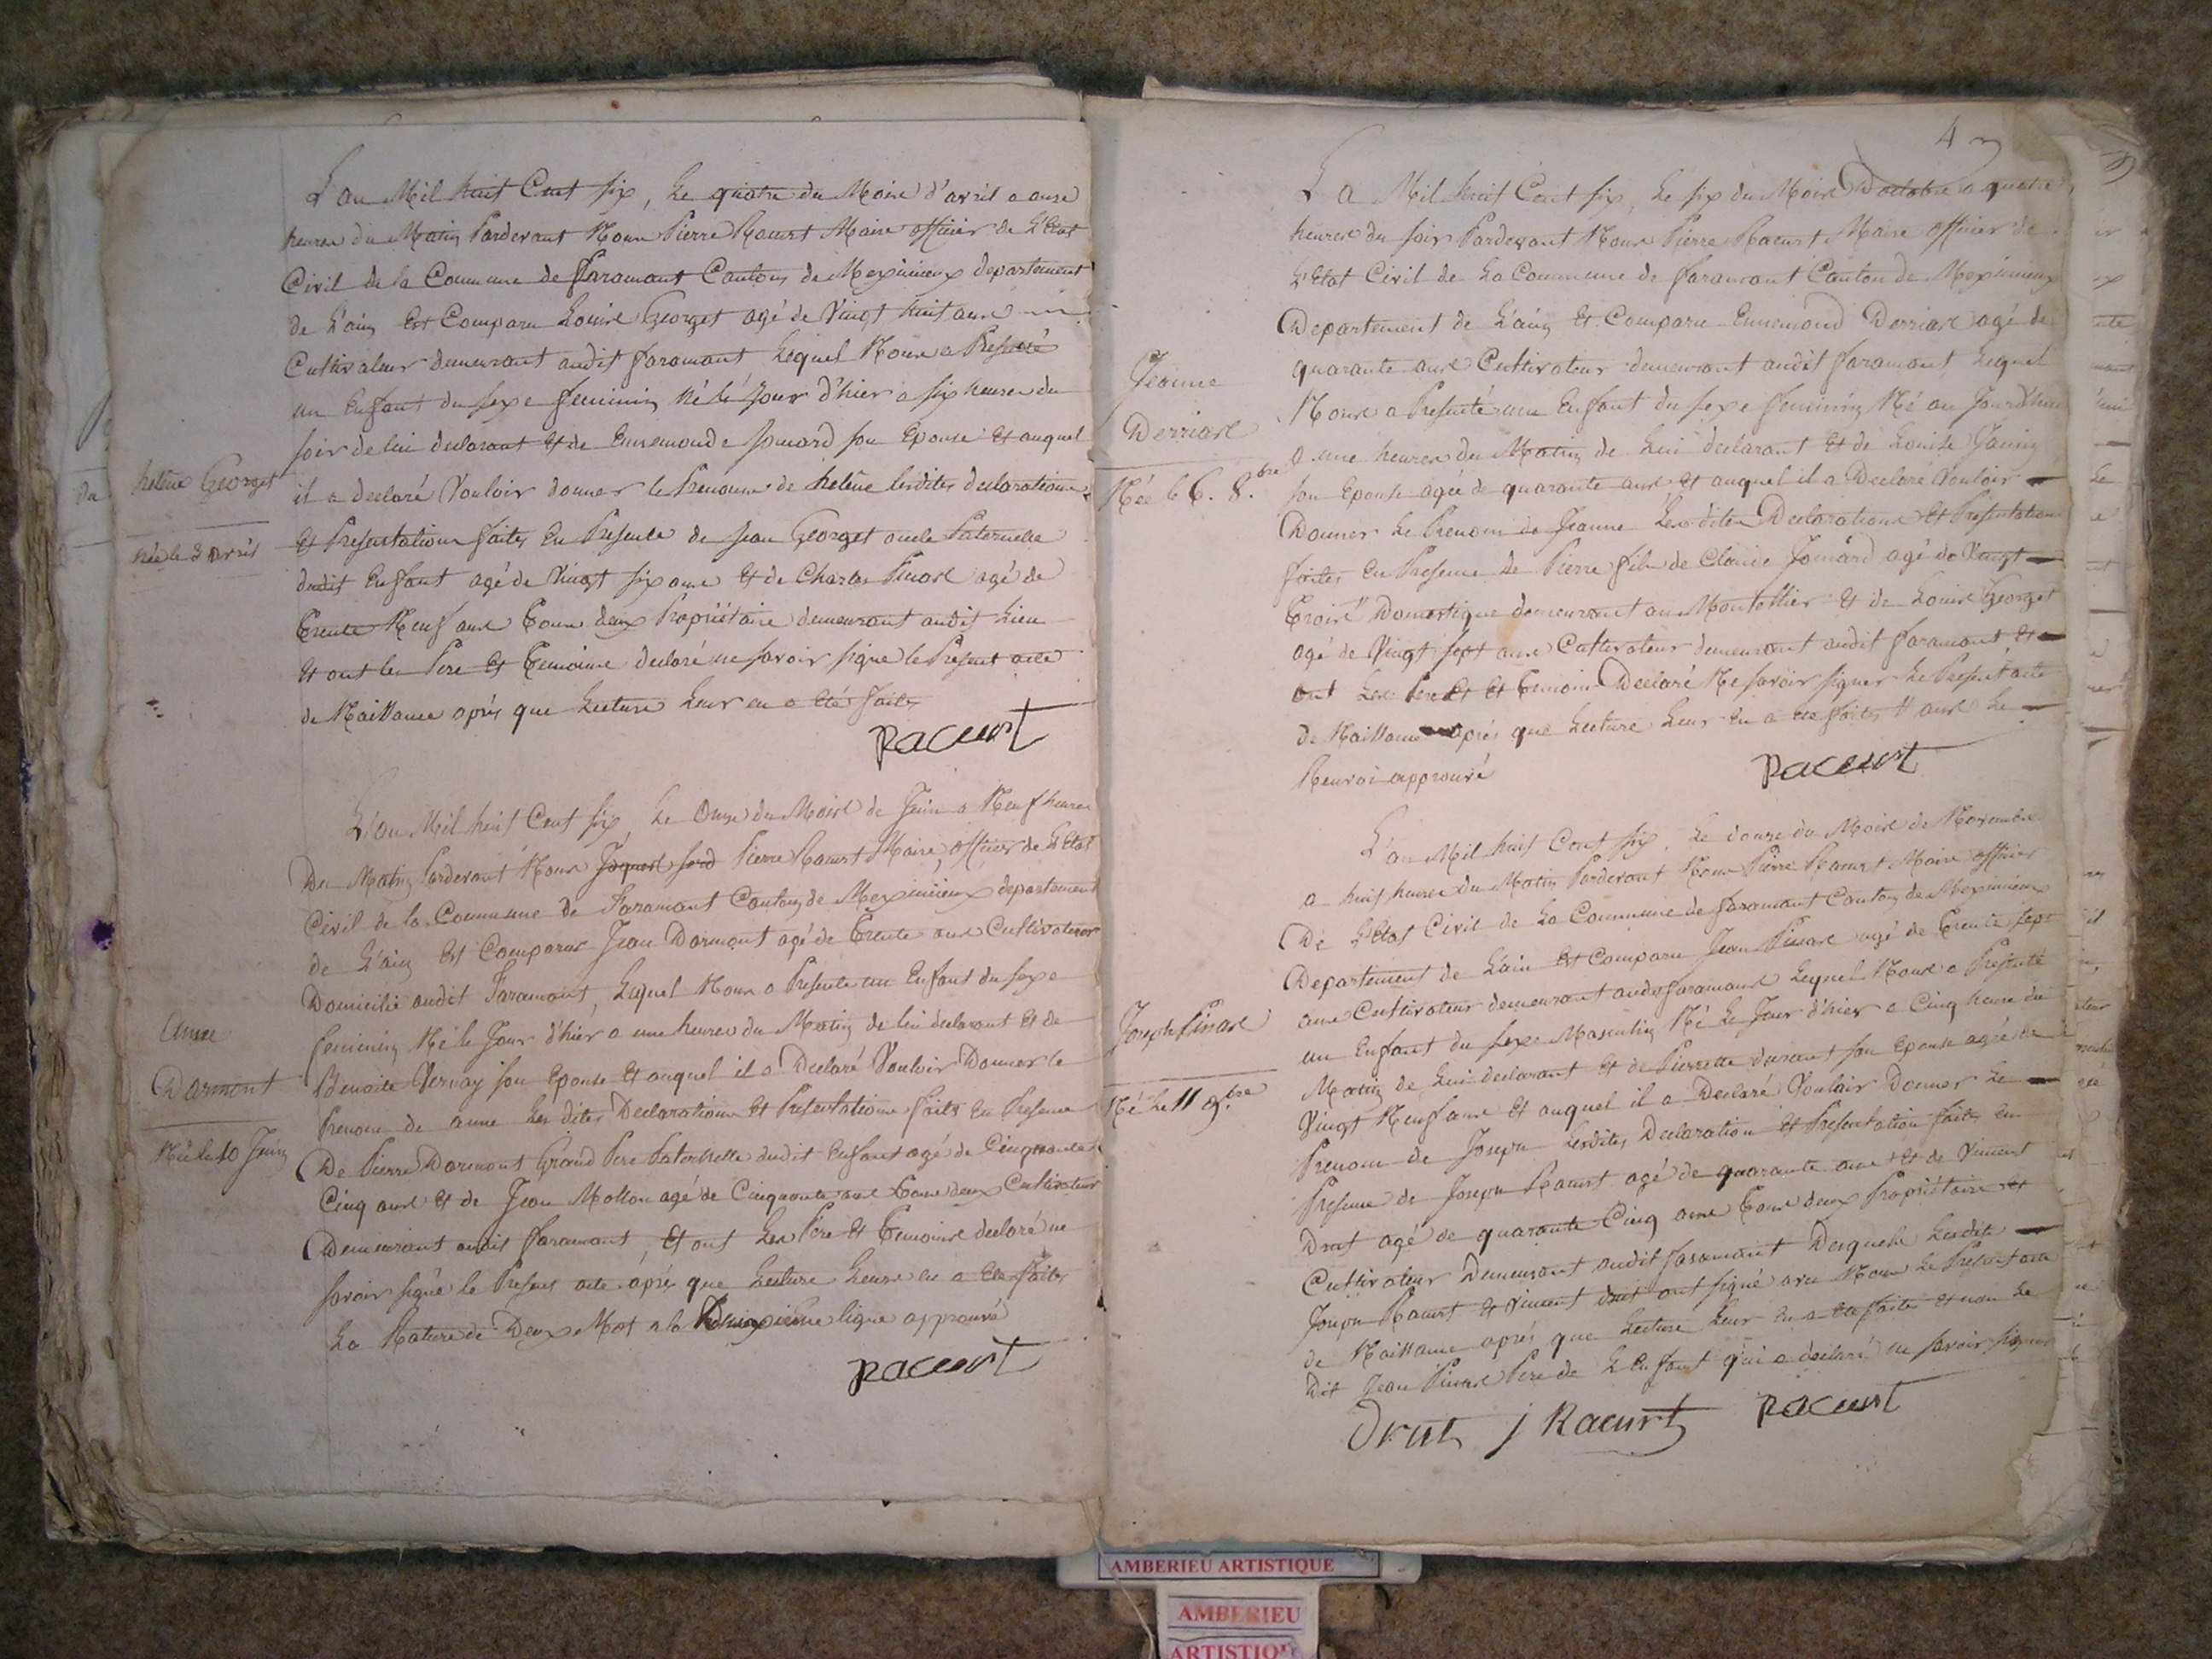 L'an Mil huit Cent six, Le quatre du Moise d'avril a onze
heures du Matin Pardevant Nous Pierre Racurt Maire officier de L'Etat
Civil de la Commune de faramant Canton de Meximieux departement
de L'ain Est Comparu Louise Georget agé de Vingt huit anse
Cultivateur demeurant audit faramant Lequel Nous a Presenté
un Enfant du sexe feminin Né le jour d'hier a six heures du
soir de lui declarant Et de Ennemonde Jomard son Epouse Et auquel
il a declaré Vouloir donner le Prenoms de heléne lesdites declarations
Et Presentations faites En Presence de jean Georget oncle Paternelle
dudit Enfant agé de Vingt six ans Et de Charles Pinase agé de
trente Neuf anse tous deux Propriétaire demeurant audit Lieu
Et ont les Pere Et temoins declaré ne savoir signe le Present acte
de Naissance aprés que Lecture Leur en a été faites
Racurt
heléne Georget
née le 3 avril
L'an Mil huit Cent six, Le Onze du Moise de Juin a Neuf heures
Du Matin Pardevant Nous Pierre Racurt Maire, officier de L'Etat
Civil de la Commune de Faramant Canton de Meximieux departement
de L'ain Est Comparus Jean Darmont agé de trente anse Cultivateur
Domicilié audit Faramant, Lequel Nous a Presente un Enfant du sexe
feminin Né le Jour d'hier a une heures du Matin de lui declarant Et de
Benoite Vernay son Epouse Et auquel il a Declaré Vouloir Donner le
Prenom de anne Les dites Declarations Et Presentations faits En Presence
De Pierre Darmont Grand Pere Paternelle dudit Enfant agé de Cinquante
Cinq anse Et de Jean Mollon agé de Cinquante anse tous deux Cultivateur
Demeurant audit faramant, Et ont Les Pere Et temoinse declaré ne
savoir signé le Present acte aprés que Lecture Leurs en a Eté faites
La Rature de Deux Mot a la Deuxieme ligne approuvé
Racurt
anne
Darmont
Née le 10 Juin
4
L'a Mil huit Cent six, Le six du Moise D'octobre a quatre
heures du soir Pardevant Nouse Pierre Racurt Maire officier de
L'Etat Civil de La Commune de faramant Canton de Meximieux
Departement de L'ain Et Comparu Ennemond Derriase agé de
quarante anse Cultivateur demeurant audit faramant Lequel
Nouse a Presenté une Enfant du sexe feminin Né au Jourd'hui
a une heures du Matin de Lui declarant Et de Louise Janin
son Epouse agée de quarante anse Et auquel il a Declaré Vouloir
Donner Le Prenom de Jeanne Les dites Declarations Et Presentations
faites En Presence de Pierre fils de Claude Jomard agé de Vingt
troise" Domestique demeurant au Montellier Et de Louise Georget
agé de Vingt sept anse Cultivateur demeurant audit faramant Et
ont Les Pere Et temoins Declaré Ne savoir signer Le Present acte
de Naissance aprés que Lecture Leur En a été faites " anse Le
Renvoi approuvé
Racurt
Jeanne
Derriase
Née le 6. 8.bre
L'an Mil huit Cent six, Le douze du Moise de Novembre
a huit heures du Matin Pardevant Nous Pierre Racurt Maire officier
De L'Etat Civil de La Commune de faramant Canton de Meximieux
Departement de L'ain Est Comparu Jean Pinase agé de trente sept
anse Cultivateur demeurant audit faramant Lequel Nouse a Presenté
un Enfant du sexe Masculin Né Le Jour d'hier a Cinq heures du
Matin de Lui declarant Et de Pierrette durant son Epouse agée de
Vingt Neuf anse Et auquel il a Declaré Vouloir Donner Le
Prenom de Joseph Lesdites Declaration Et Presentation faites En
Presence de Joseph Racurt agé de quarante anse Et de Vincent
Drut agé de quarante Cinq anse tous deux Propriétaire et
Cultivateur Demeurant audit faramant Desquels Lesdits
Joseph Racurt Et Vincent drut ont signé avec Nous Le Present acte
de Naissance aprés que Lecture Leur En a été faite Et non Le
Dit Jean Pinase Pere de L'Enfant qui a declaré ne savoir signer
Drut J Racurt Racurt
Joseph Pinase
Né Le 11 9.bre
AMBERIEU ARTISTIQUE
AMBERIEU